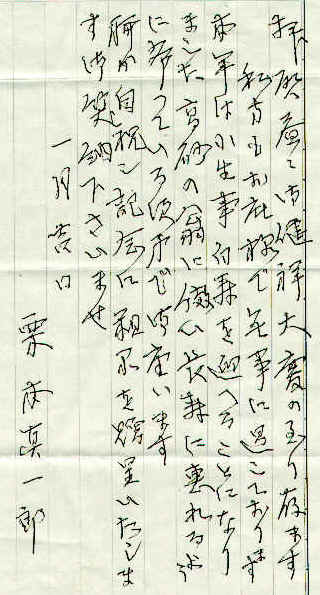 拝啓 益々御健祥大慶の至り存ます
私方もお庇様で無事に過しております
本年は小生事白寿を迎へることになり
ました 高砂の翁に倣い長寿に恵れるよう
に希っている次第で御座います
聊か自祝の記念に粗品を贈呈いたしま
す 御笑納下さいませ
一月吉日
栗本真一郎